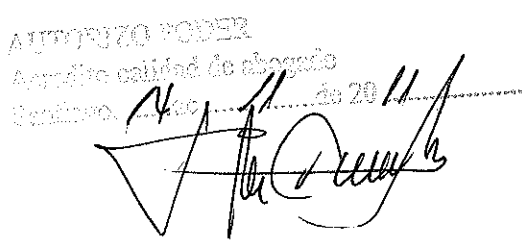 AUTORIZO PODER
Acredito calidad de abogado
Santiago, 14 de 11 de 20 11